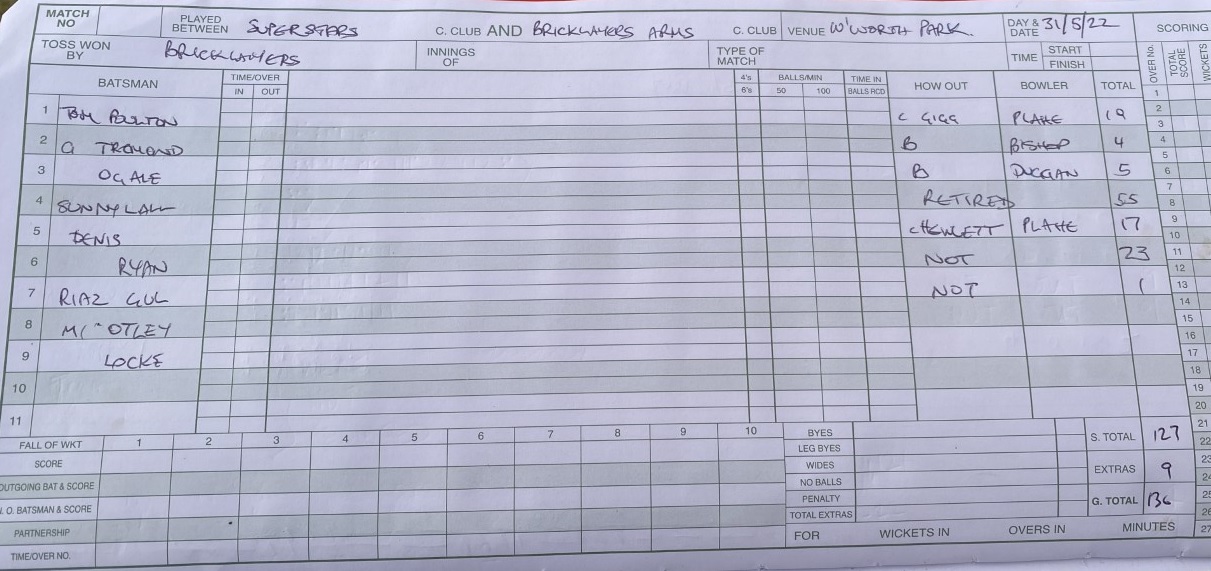 MATCH NO PLAYED BETWEEN SUPERSTARS C. CLUB AND BRICKLAYERS ARMS C. CLUB VENUE W'WORTH PARK. DAY & DATE 31/5/22 SCORING
TOSS WON BY BRICKLAYERS INNINGS OF TYPE OF MATCH TIME START FINISH
BATSMAN TIME/OVER IN OUT 4's 6's BALLS/MIN 50 100 TIME IN BALLS RCD HOW OUT BOWLER TOTAL OVER NO. TOTAL SCORE WICKETS
1 POULTON C GIGG PLAHE 19
2 G B BISHOP 4
3 OGALE B DUGGAN 5
4 SUNNY LALL RETIRED 55
5 DENIS C HEWLETT PLAHE 17
6 RYAN NOT 23
7 RIAZ GUL NOT 1
8 OTLEY
9 LOCKE
10
11
1
2
3
4
5
6
7
8
9
10
11
12
13
14
15
16
17
18
19
20
21
22
23
24
25
26
27
FALL OF WKT 1 2 3 4 5 6 7 8 9 10 BYES S. TOTAL 127
SCORE LEG BYES
OUTGOING BAT & SCORE WIDES EXTRAS 9
N. O. BATSMAN & SCORE NO BALLS
PARTNERSHIP PENALTY G. TOTAL 136
TIME/OVER NO. TOTAL EXTRAS
FOR WICKETS IN OVERS IN MINUTES